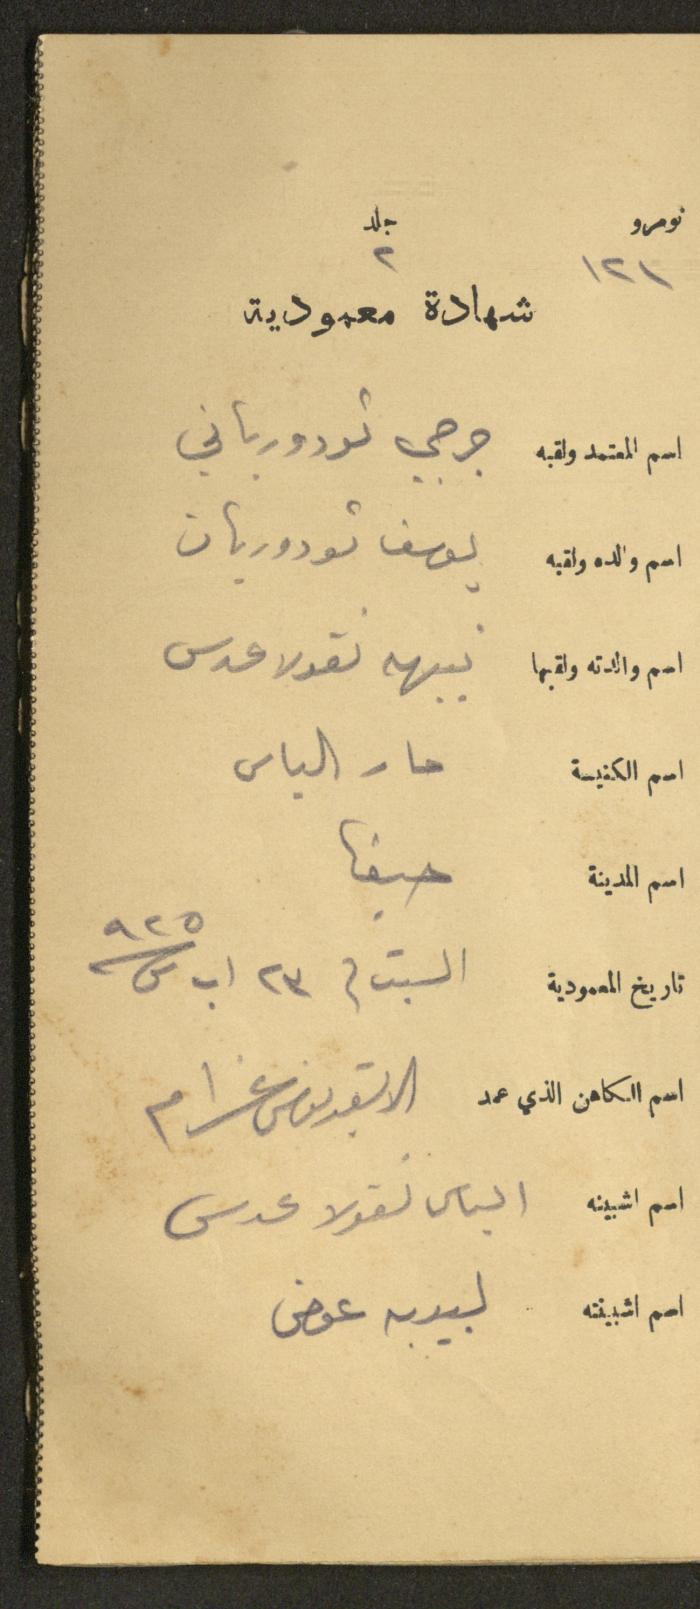 نومرو جلد
١٢١ ٢
شهادة معمودية
اسم المعتمد ولقبه جرجي تودورياني
اسم والده ولقبه يوسف تودوريان
اسم والدته ولقبها نبيهه نقولا عدس
اسم الكنيسة مار الياس
اسم المدينة حيفا
تاريخ المعمودية السبت في ٢٣ اب س ٩٢٥
اسم الكاهن الذي عمد
اسم اشبينه الياس نقولا عدس
اسم اشبينته لبيبه عوض